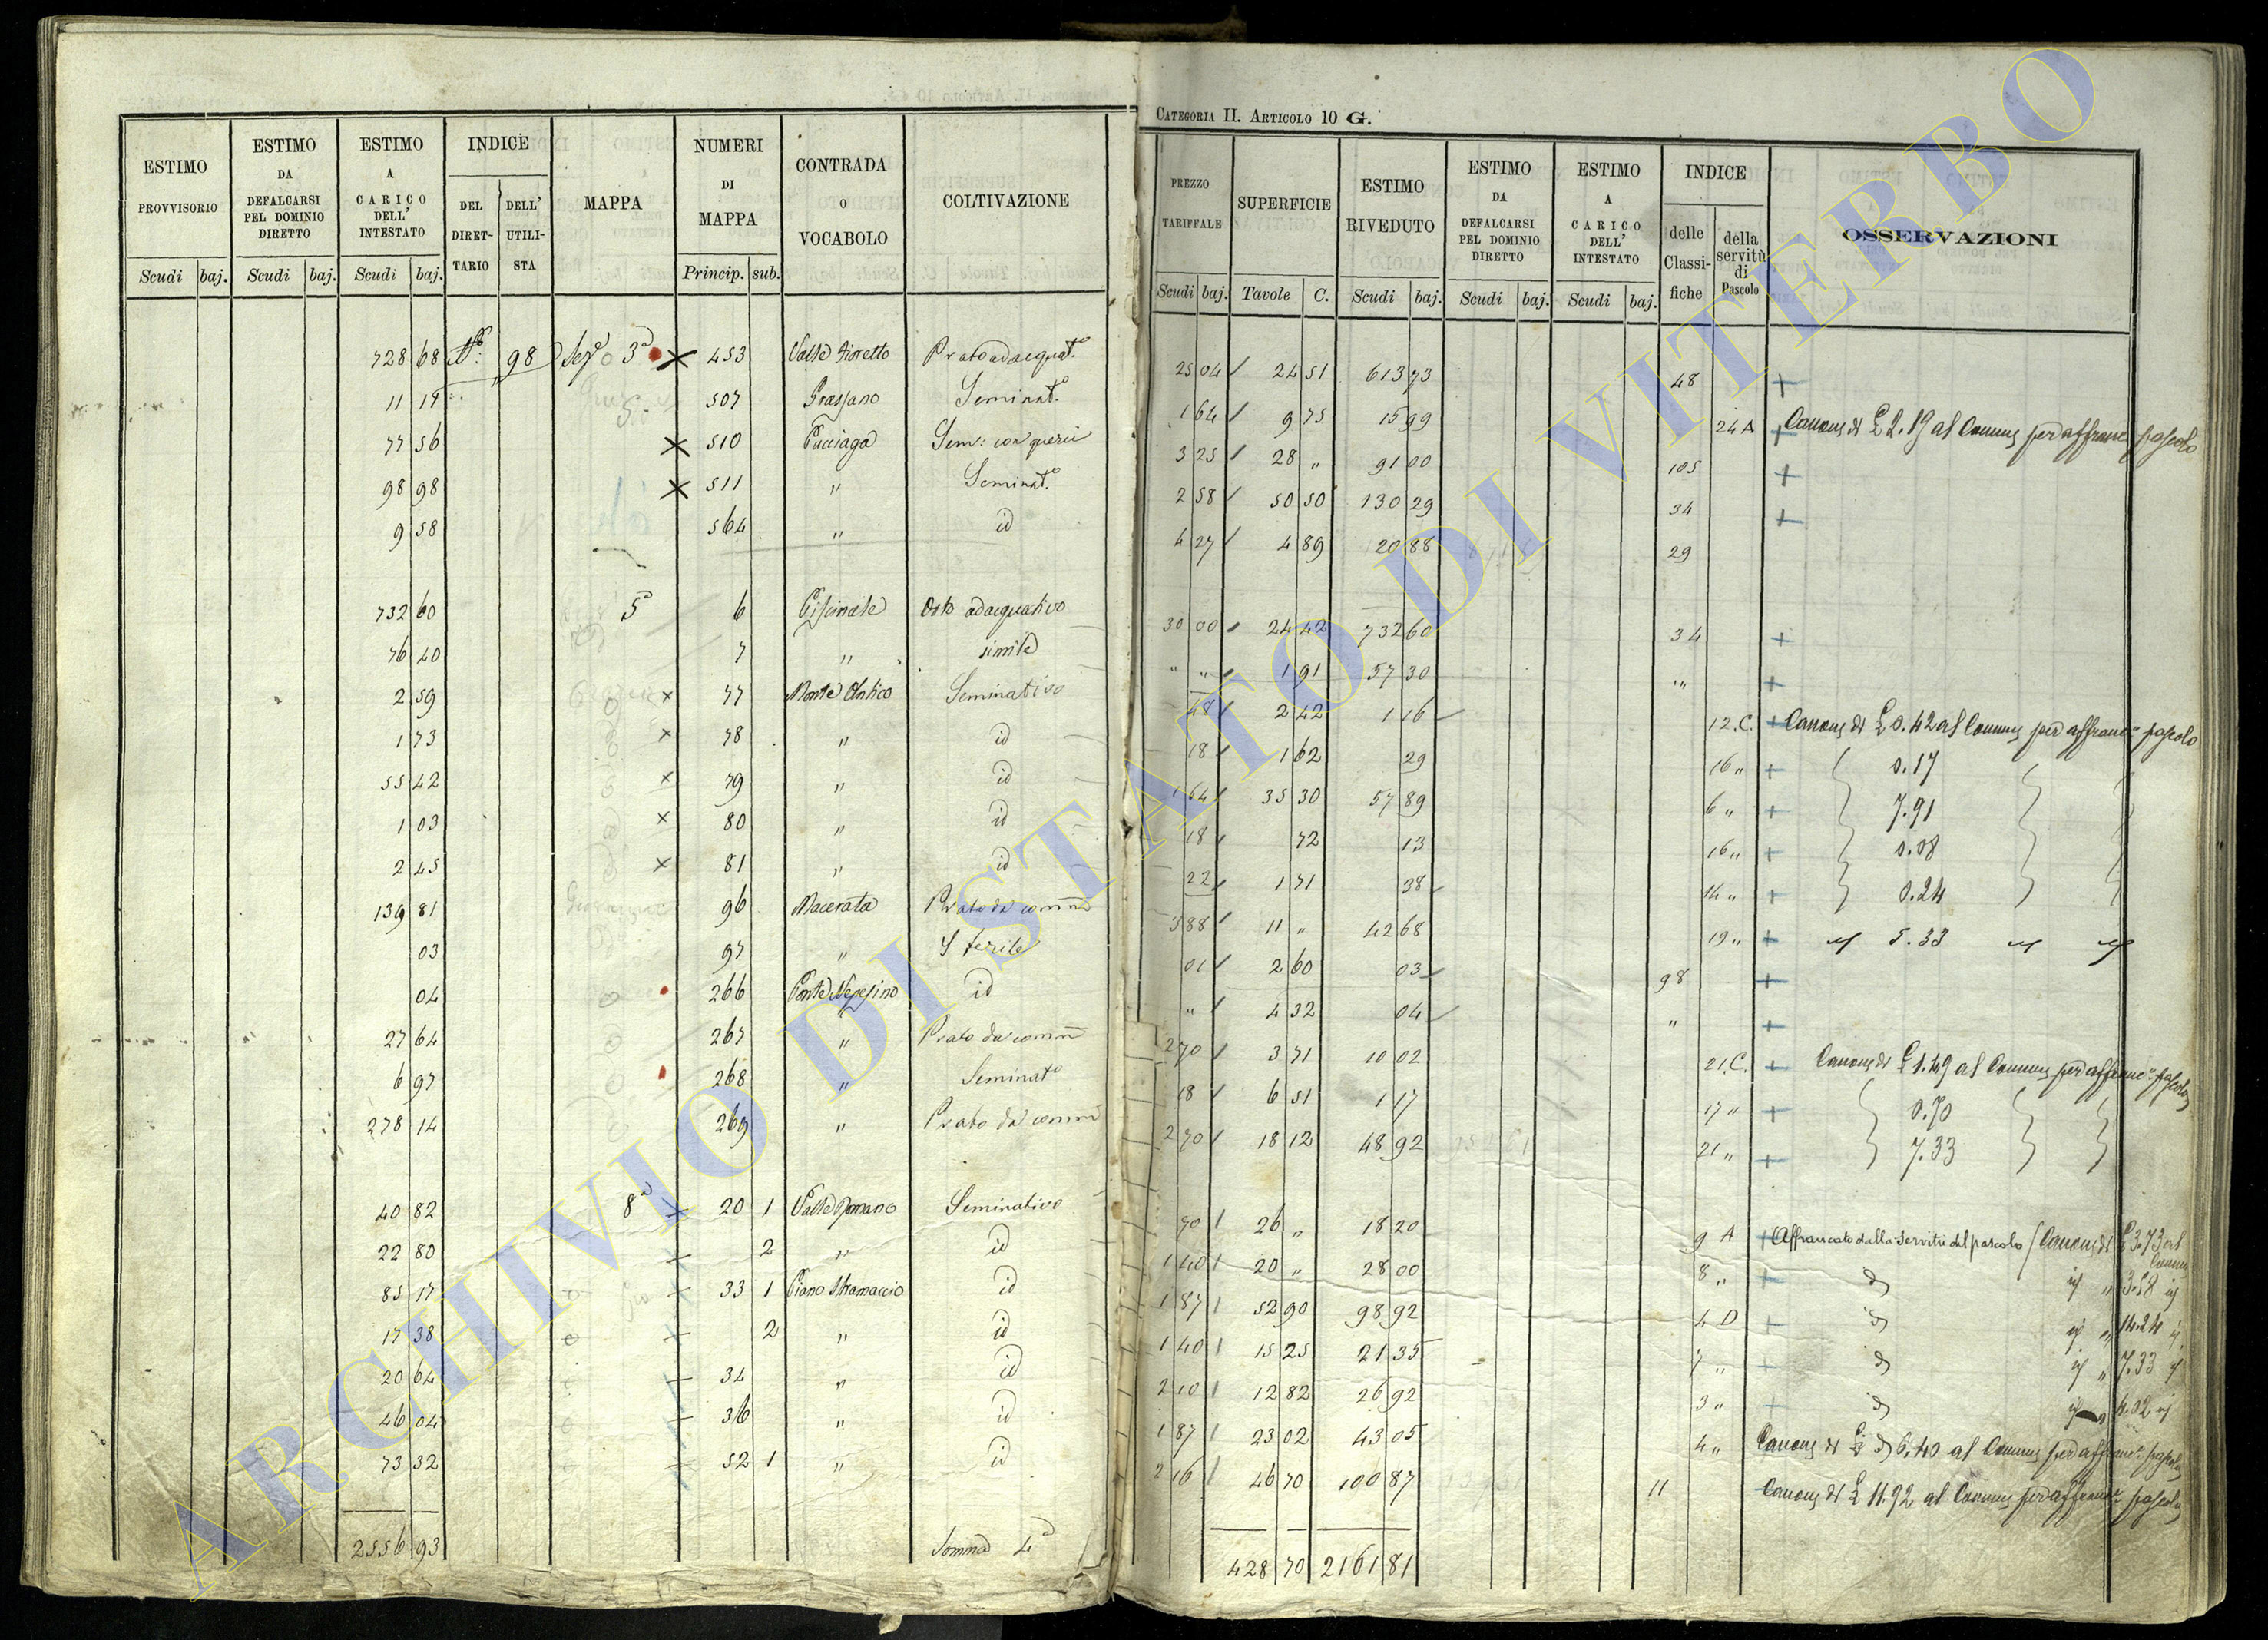 CATEGORIA II. ARTICOLO 10 G.
ESTIMO PROVVISORIO Scudi baj.
ESTIMO DA DEFALCARSI PEL DOMINIO DIRETTO Scudi baj.
ESTIMO A CARICO DELL' INTESTATO Scudi baj.
INDICE DEL DIRETTARIO DELL' UTILISTA
MAPPA
NUMERI DI MAPPA Princip. sub.
CONTRADA O VOCABOLO
COLTIVAZIONE
PREZZO TARIFFALE Scudi baj.
SUPERFICIE Tavole C.
ESTIMO RIVEDUTO Scudi baj.
ESTIMO DA DEFALCARSI PEL DOMINIO DIRETTO Scudi baj.
ESTIMO A CARICO DELL' INTESTATO Scudi baj.
INDICE delle Classifiche della servitù di Pascolo
OSSERVAZIONI
728 68 98 Sez° 3ª 453 Valle Fioretto Prato adacquat.° 25 04 24 51 613 73 48
11 19 507 Grassano Seminat.° 1 64 9 75 15 99 24 A Canone di £ 2.19 al Comune per affranc pascolo
77 56 510 Pucciaga Sem: con querci 3 25 28 " 91 00 105
98 98 511 " Seminat.° 2 58 50 50 130 29 34
9 58 564 " id 4 27 4 89 20 88 29
732 60 5ª 6 Piscinale Orto adacquativo 30 00 24 42 732 60 34
76 40 7 " simile " " 1 91 57 30 "
2 59 77 Monte Antico Seminativo 48 2 42 1 16 12.C. Canone di £ 0.42 al Comune per affranc° pascolo
1 73 78 " id 18 1 62 29 16 " 0.17
55 42 79 " id 1 64 35 30 57 89 6 " 7.91
1 03 80 " id 18 72 13 16 " 0.08
2 45 81 " id 22 1 71 38 14 " 0.24
139 81 96 Macerata Prato da comm 3 88 11 " 42 68 19 " 5.33
03 97 " Sterile 01 2 60 03 98
04 266 Ponte Nepesino id " 4 32 04 "
27 64 267 " Prato da comm 2 70 3 71 10 02 21.C. Canone di £ 1.49 al Comune per affranc° pascolo
6 97 268 " Seminat° 18 6 51 1 17 17 " 0.70
278 14 269 " Prato da comm 2 70 18 12 48 92 21 " 7.33
40 82 8ª 20 1 Valle Romano Seminativo 70 26 " 18 20 9 A Affrancato dalla Servitù del pascolo / Canone di £ 3.73 al Comune
22 80 2 " id 1 40 20 " 28 00 8 " 3.58
85 17 33 1 Piano Stramaccio id 1 87 52 90 98 92 4 D 14.24
17 38 2 " id 1 40 15 25 21 35 7 " 7.33
20 64 34 " id 2 10 12 82 26 92 3 " 4.02
46 04 36 " id 1 87 23 02 43 05 4 " Canone di £ 6.40 al Comune per affranc° pascolo
73 32 52 1 " id 2 16 46 70 100 87 11 Canone di £ 11.92 al Comune per affranc° pascolo
2556 93 Somma 4ª 428 70 2161 81
ARCHIVIO DI STATO DI VITERBO